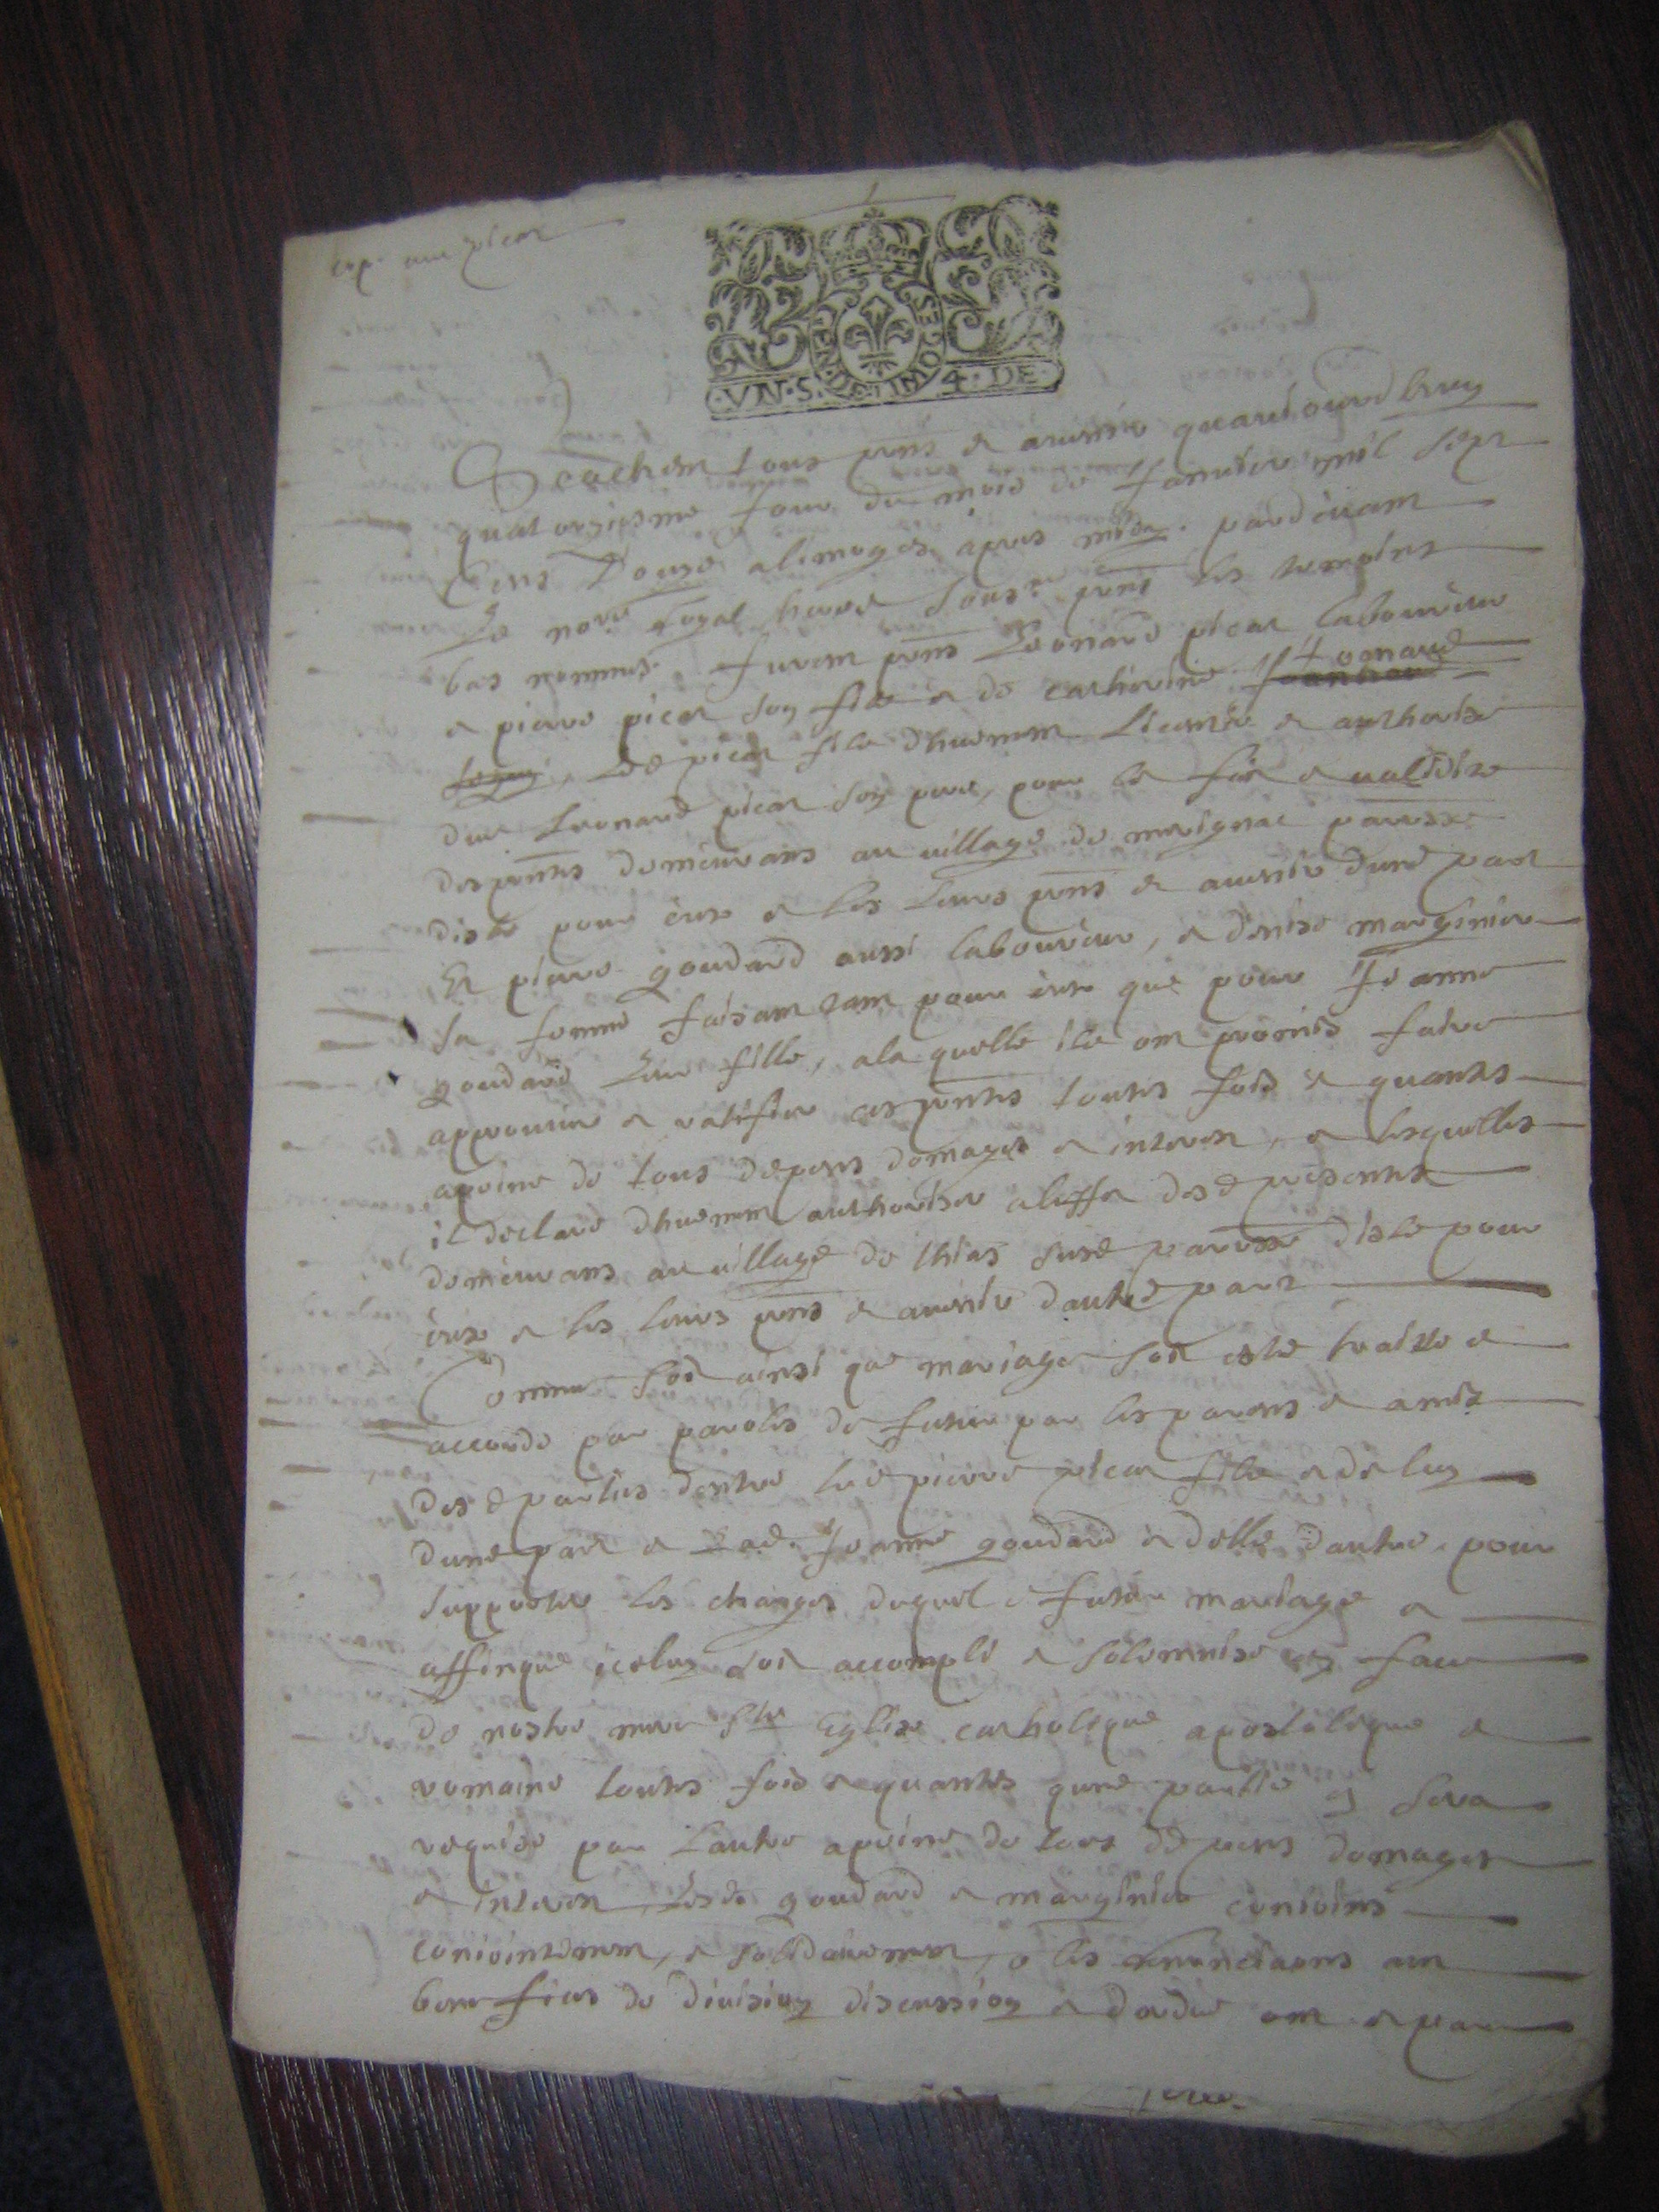 picat
GEN·DE·LIMOGES
·VN·S· 4·DE·
Scachent tous pnts et avenir quaujourdhuy
quatorziesme Jour du mois de Janvier mil sept
Cens Douze a limoges apres midy pardevant
Le no.re Royal hered. sous.ne pnts les temoins
bas nommes furent pnts Leonard picat laboureur
e pierre picat son fils e de catherine Leonard
led picat fils dhuement Licentie e authorise
dud Leonard picat son pere, pour le fait e validite
des pntes demeurans au village de merignac parroisse
disle pour eux e les leurs pnts e avenir dune part
Et pierre goudard aussi laboureur, e denise marginier
sa femme faisant tant pour eux que pour Jeanne
goudard Leur fille, a la quelle ils ont promis faire
approuver e ratifier ces pntes toutes fois e quantes
a peine de tous depens domages e interest, e lesquelles
il declare dhuement authoriser a leffet desd presentes
demeurans au village de thias susd parroisse disle pour
eux e les leurs pnts e avenir dautre part
Comme soit ainsi que mariage soit este traitte e
accorde par parolles de futur par les parens e amis
desd parties dentre led pierre picat fils e de luy
dune part e lad. Jeanne goudard e delle dautre, pour
supporter les charges duquel futur mariage e
affinque icelui soit accompli e solemnise en face
de nostre mere Ste Eglise catholique apostolique e
romaine toutes fois e quantes qune partie en sera
requise par Lautre a peine de tous depens domages
e interest, Lesd. goudard e marginier conioins
coniointement, e solidairement, o les renunciaons aux
benefices de division discussion e dordre ont e par